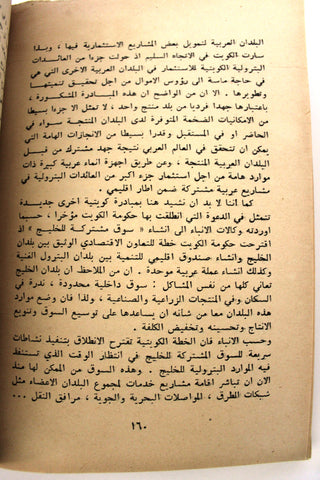 البلدان العربية لتمويل بعض المشاريع الاستثمارية فيها ، وبذا
سارت الكويت في الاتجاه السليم اذ حولت جزءا من العائدات
البترولية الكويتية للاستثمار في البلدان العربية الاخرى التي هي
في حاجة ماسة الى رؤوس الاموال من اجل تحقيق تنميتها
وتطويرها . الا ان من الواضح ان هذه المبادرة المشكورة ،
باعتبارها جهدا فرديا من بلد منتج واحد ، لا تمثل الا جزءا بسيطا
من الامكانيات الضخمة المتوفرة لدى البلدان المنتجة سواء في
الحاضر او في المستقبل وقدرا بسيطا من الانجازات الهامة التي
يمكن ان تتحقق في العالم العربي نتيجة جهد مشترك من قبل
البلدان العربية المنتجة ، وعن طريق اجهزة انماء عربية كبيرة ذات
موارد هامة من اجل استثمار جزء اكبر من العائدات البترولية في
مشاريع عربية مشتركة ضمن اطار اقليمي .
كما اننا لا بد ان نشيد هنا بمبادرة كويتية اخرى جديدة
تتمثل في الدعوة التي انطلقت بها حكومة الكويت مؤخرا ، حسبما
اوردته وكالات الانباء الى انشاء « سوق مشتركة للخليج » اذ
اقترحت حكومة الكويت خطة للتعاون الاقتصادي الوثيق بين بلدان
الخليج وانشاء صندوق اقليمي للتنمية بين بلدان البترول الغنية
وكذلك انشاء عملة عربية موحدة . ان من الملاحظ ان بلدان الخليج
تعاني كلها من نفس المشاكل : سوق داخلية محدودة ، ندرة في
السكان وفي المنتجات الزراعية والصناعية ، ولذا فان وضع موارد
هذه البلدان معا من شانه ان يساعدها على توسيع السوق وتنويع
الانتاج وتحسينه وتخفيض الكلفة .
وحسب الانباء فان الخطة الكويتية تقترح الانطلاق بتنفيذ نشاطات
سريعة للسوق المشتركة للخليج في انتظار الوقت الذي تستنفد
فيه الموارد البترولية للخليج . وهذه السوق من الممكن لها منذ
الان ان تباشر اقامة مشاريع خدمات لمجموع البلدان الاعضاء مثل
شبكات الطرق ، المواصلات البحرية والجوية ، مرافق النقل ...
١٦٠